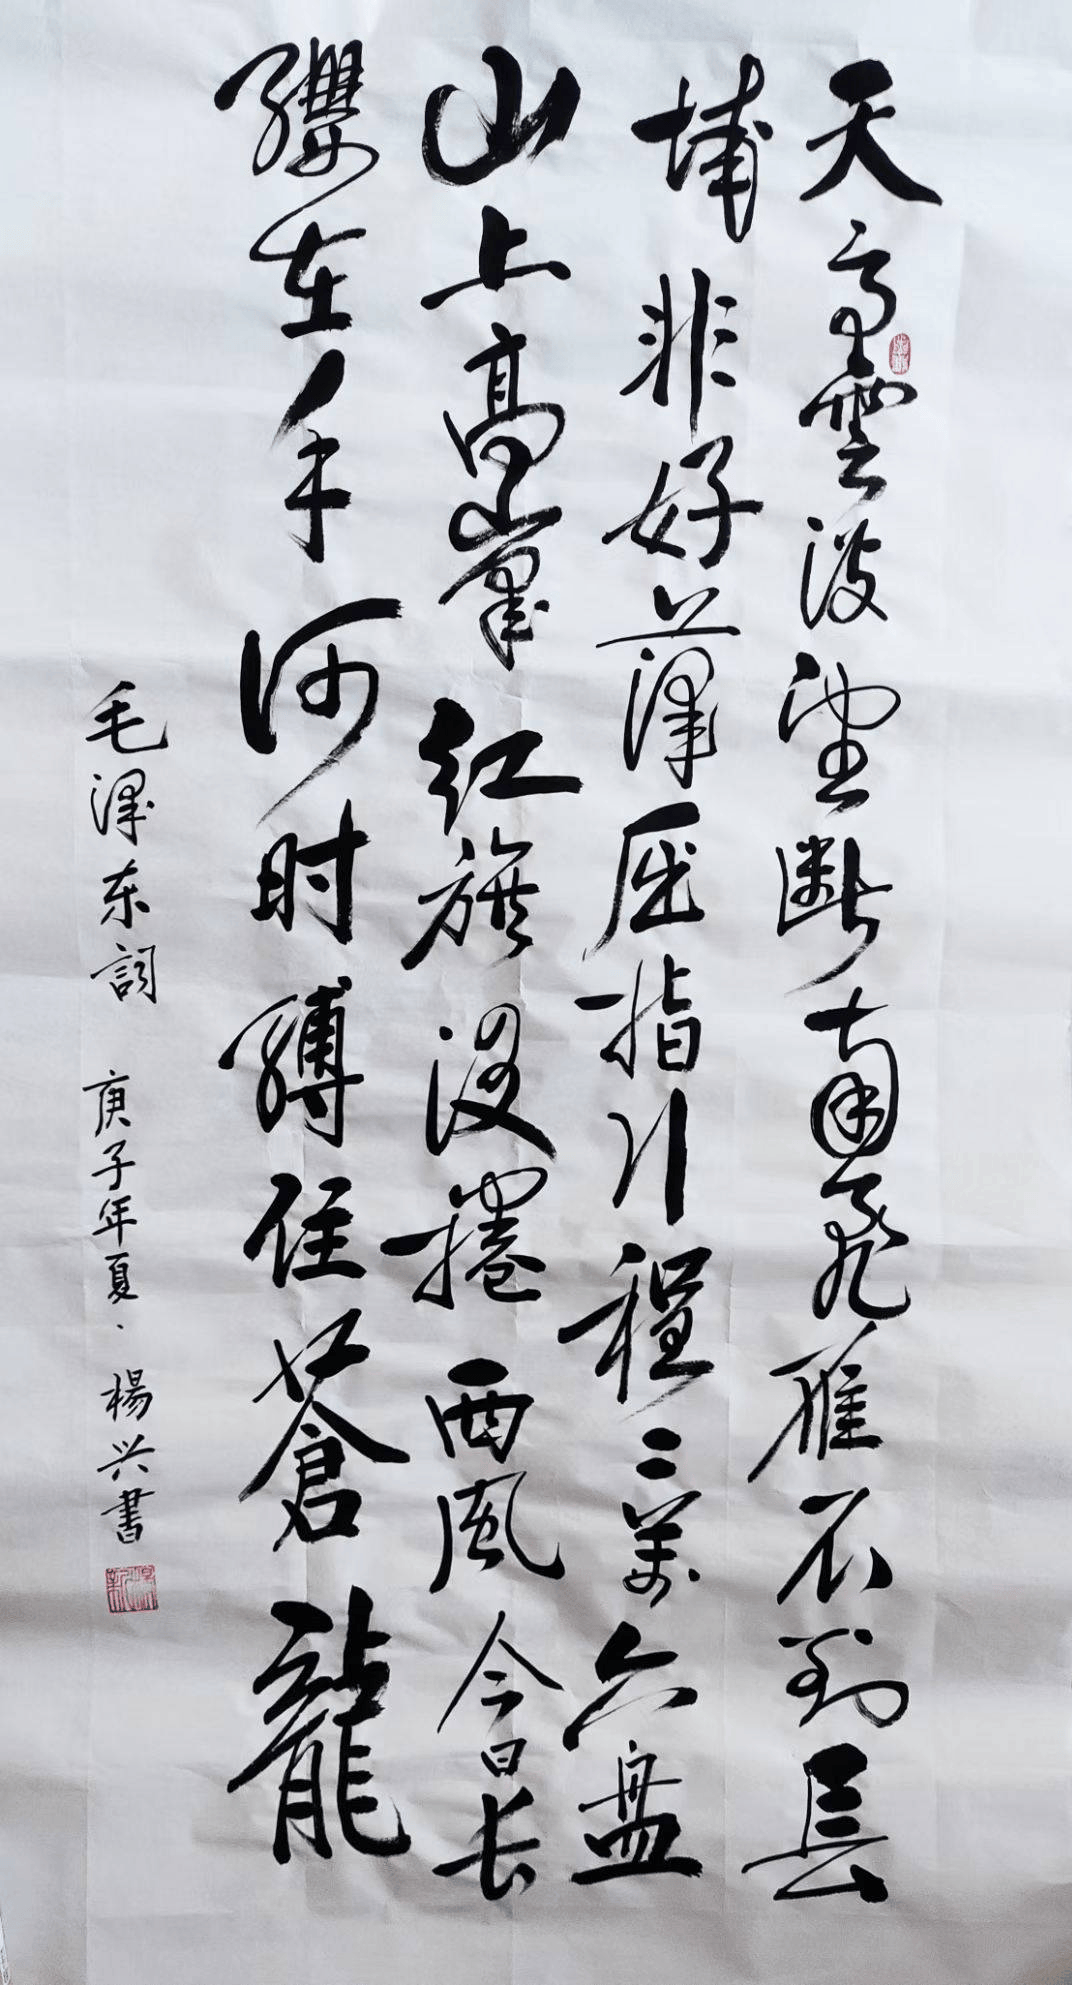 天高雲淡望斷南飛雁不到長
城非好漢屈指行程二萬六盤
山上高峯红旗漫捲西風今日长
纓在手何时縛住蒼龍
毛澤东詞 庚子年夏·楊兴書